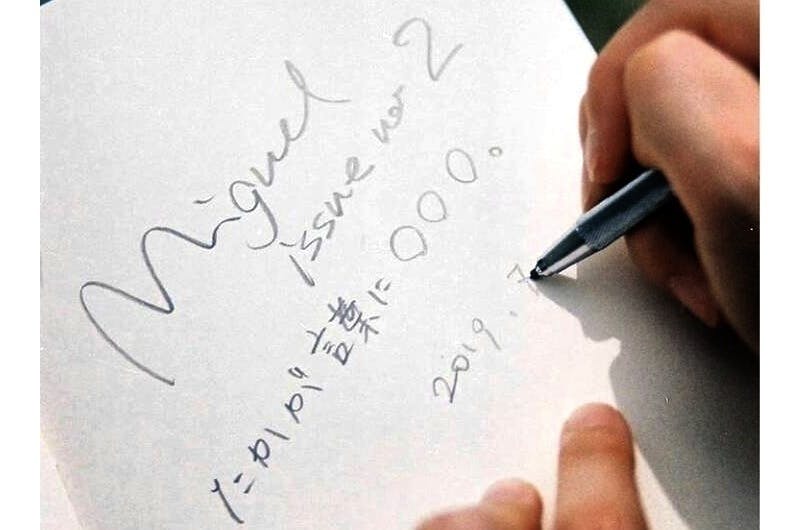 Miguel
issue 2
たかが言葉に〇〇〇。
2019.7